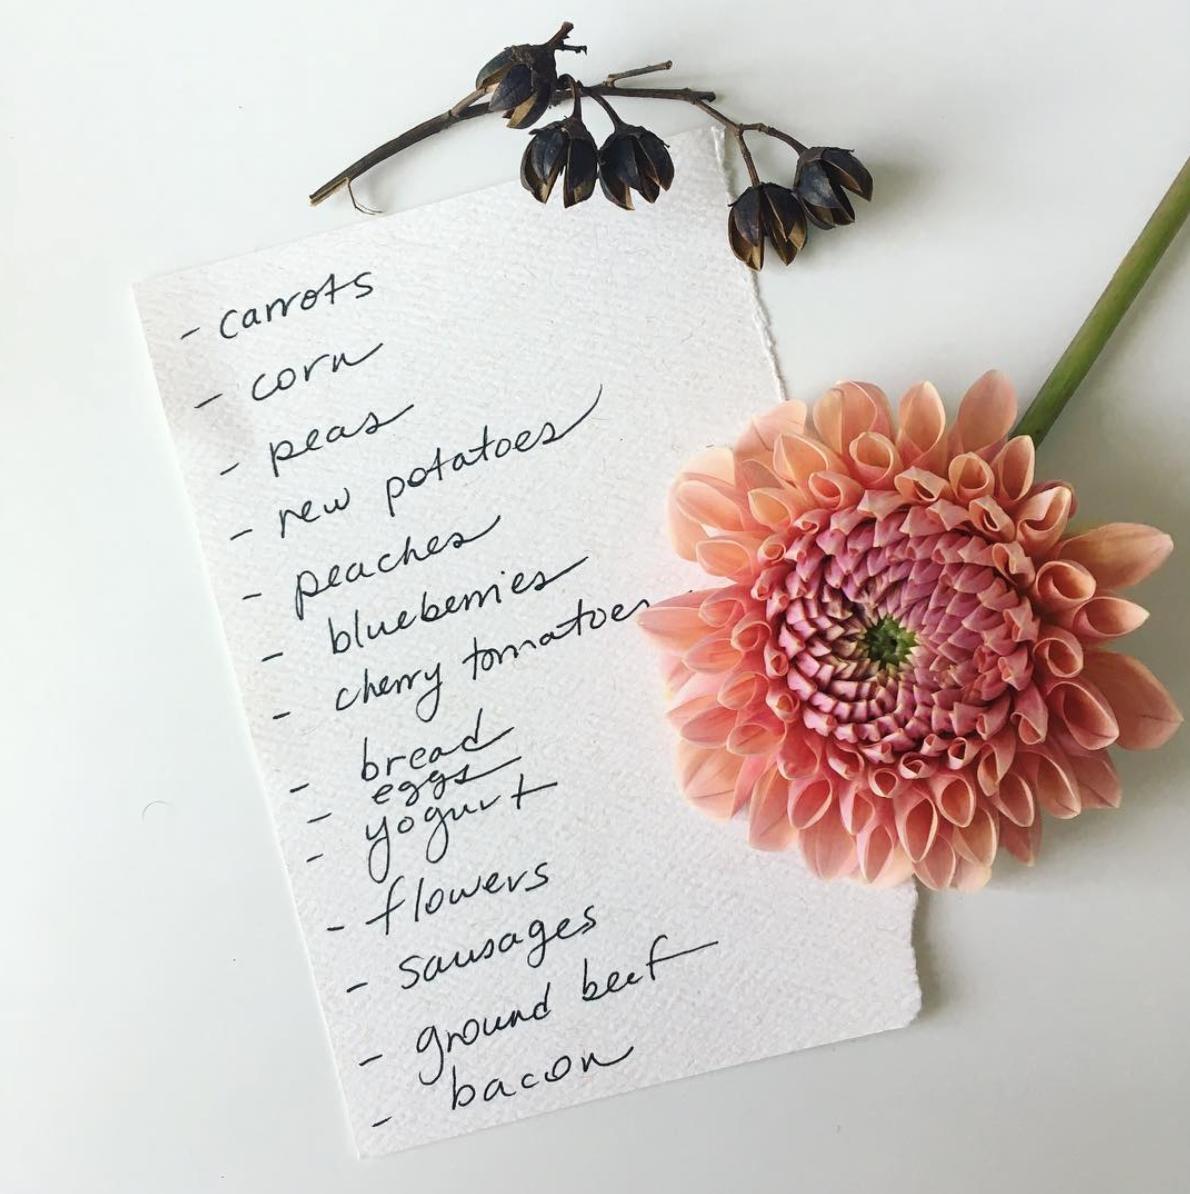 - carrots
- corn
- peas
- new potatoes
- peaches
- blueberries
- cherry tomatoes
- bread
- eggs
- yogurt
- flowers
- sausages
- ground beef
- bacon